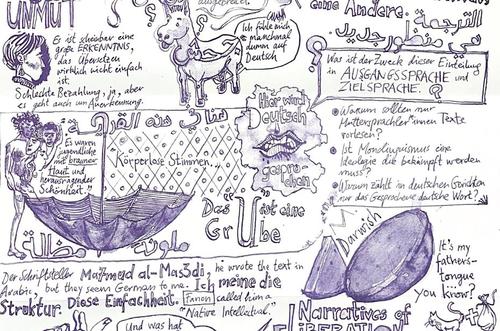 UNMUT
ausgebrochen.
Ich fühle mich
manchmal
dumm auf
Deutsch
eine Andere.
الترجمة
في منظور جديد
Es ist scheinbar eine
große ERKENNTNIS,
dass Übersetzen
wirklich nicht einfach
ist
Schlechte Bezahlung, ja, aber
es geht auch um Anerkennung.
Was ist der Zweck dieser Einteilung
in AUSGANGSSPRACHE und
ZIELSPRACHE.?
Warum sollten nur
Muttersprachler*innen Texte
vorlesen?
Ist Monolinguismus eine
Ideologie die bekämpft werden
muss?
Warum zählt in deutschen Gerichten
nur das Gesprochene deutsche Wort?
هنا في هذه
Hier wird
Deutsch
gespro-
chen
"Es waren
jugendliche
mit brauner
Haut und
herausragender
Schönheit"
Körperlose Stimmen.
Das Ü ist eine
Grube
مظالة
ملونة
Darwish
It's my
fathers-
tongue
you know?
Der Schriftsteller Mahmoud al-Mas3di, he wrote the text in
Arabic, but they seem German to me. Ich meine die
Struktur. Diese Einfachheit. Fanon called him a
"Native Intellectual."
Narratives of
LIBERATION
Und was hat